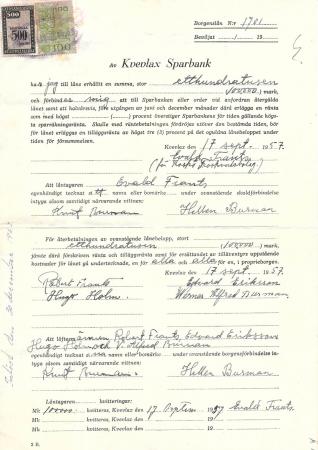 500
500
100
Borgenslån N:r 1781
Beviljat / 19
Av Kvevlax Sparbank
ha jag till låns erhållit en summa, stor etthundratusen
(100,000) mark,
och förbind mig att till Sparbanken eller order vid anfordran återgälda
lånet samt att halvårsvis, före utgången av juni och december månader därå erlägga en ränta
som med högst ( ) procent överstiger Sparbankens för tiden gällande högsta
inlåningsränta. Skulle med räntebetalningen fördröjas utöver ovan bestämda tiden, bör
för lånet erläggas en tilläggsränta av högst tre (3) procent på det oguldna lånebeloppet under
tiden för försummelsen.
Kvevlax 17 sept. 1957.
Evald Frants
Att låntagaren Evald Frants
egenhändigt tecknat sitt namn eller bomärke under ovanstående skuldförbindelse
intyga såsom samtidigt närvarande vittnen:
Knut Burman Hellen Burman
För återbetalningen av ovanstående lånebelopp, stort
etthundratusen (100,000) mark,
jämte därå löpande ränta och tilläggsränta samt för ersättandet av tilläventyrs uppstående
kostnader för lånet gå undertecknade, en för alla och alla för en, i proprieborgen.
Kvevlax 17 sept. 1957.
Robert Frants Edvard Eriksson
Hugo Holm Werner Alfred Burman
Att löftesmännen Robert Frants, Edvard Eriksson
Hugo Holm och W. Alfred Burman
egenhändigt tecknat sina namn eller bomärke under ovanstående borgensförbindelse
intyga såsom samtidigt närvarande vittnen:
Knut Burman Hellen Burman
Låntagaren kvitteringar:
Mk 100000 kvitteras, Kvevlax 17 September 1957 Evald Frants
Mk kvitteras, Kvevlax 19
Mk kvitteras, Kvevlax 19